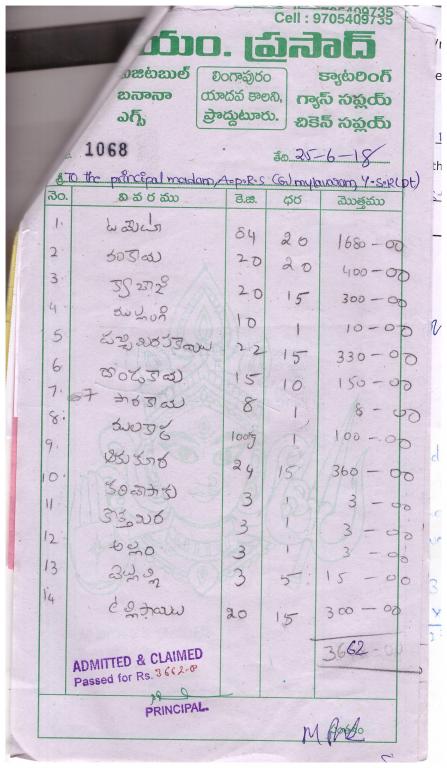 9705409735
Cell : 9705409735
యం. ప్రసాద్
విజిటబుల్ లింగాపురం క్యాటరింగ్
బనానా యాదవ కాలని, గ్యాస్ సప్లయ్
ఎగ్స్ ప్రొద్దుటూరు. చికెన్ సప్లయ్
1068 తేది 25-6-18
శ్రీ To the principal madam, A=P=R=S (G) mylavaram, Y-S=R(Dt)
నెం. వివరము కె.జి. ధర మొత్తము
1. టమేటా 84 20 1680-00
2 వంకాయ 20 20 400-00
3. క్యాబేజి 20 15 300-00
4 ముల్లంగి 10 1 10-00
5 పచ్చిమిరపకాయలు 22 15 330-00
6 దొండకాయ 15 10 150-00
7. సొరకాయ 8 1 8-00
8. మునక్కాడ 100 1 100-00
9. ఆకుకూర 24 15 360-00
10. కరివేపాకు 3 1 3-00
11 కొత్తిమిర 3 1 3-00
12 అల్లం 3 1 3-00
13 వెల్లుల్లి 3 5 15-00
14 ఉల్లిపాయలు 20 15 300-00
3662-00
ADMITTED & CLAIMED
Passed for Rs. 3662-0
PRINCIPAL.